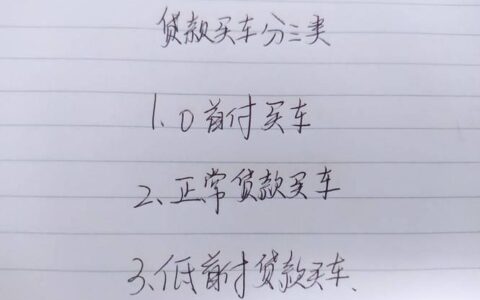 贷款买车分三类
1.0首付买车
2、正常贷款买车
3、低首付贷款买车、